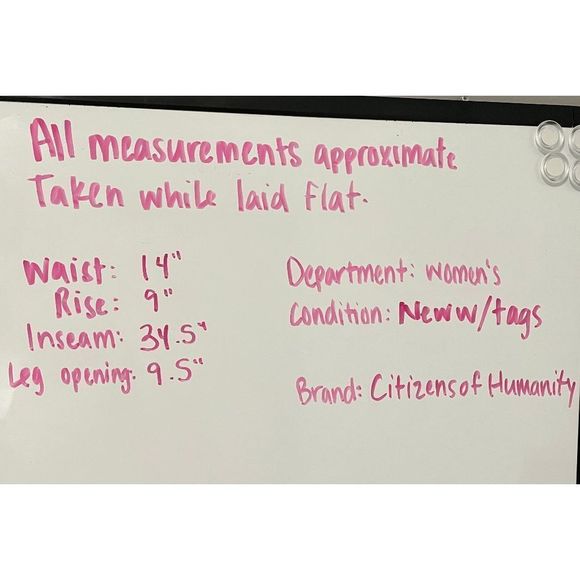 All measurements approximate
Taken while laid flat.
Waist: 14"
Rise: 9"
Inseam: 34.5"
Leg opening: 9.5"
Department: women's
Condition: New w/tags
Brand: Citizens of Humanity